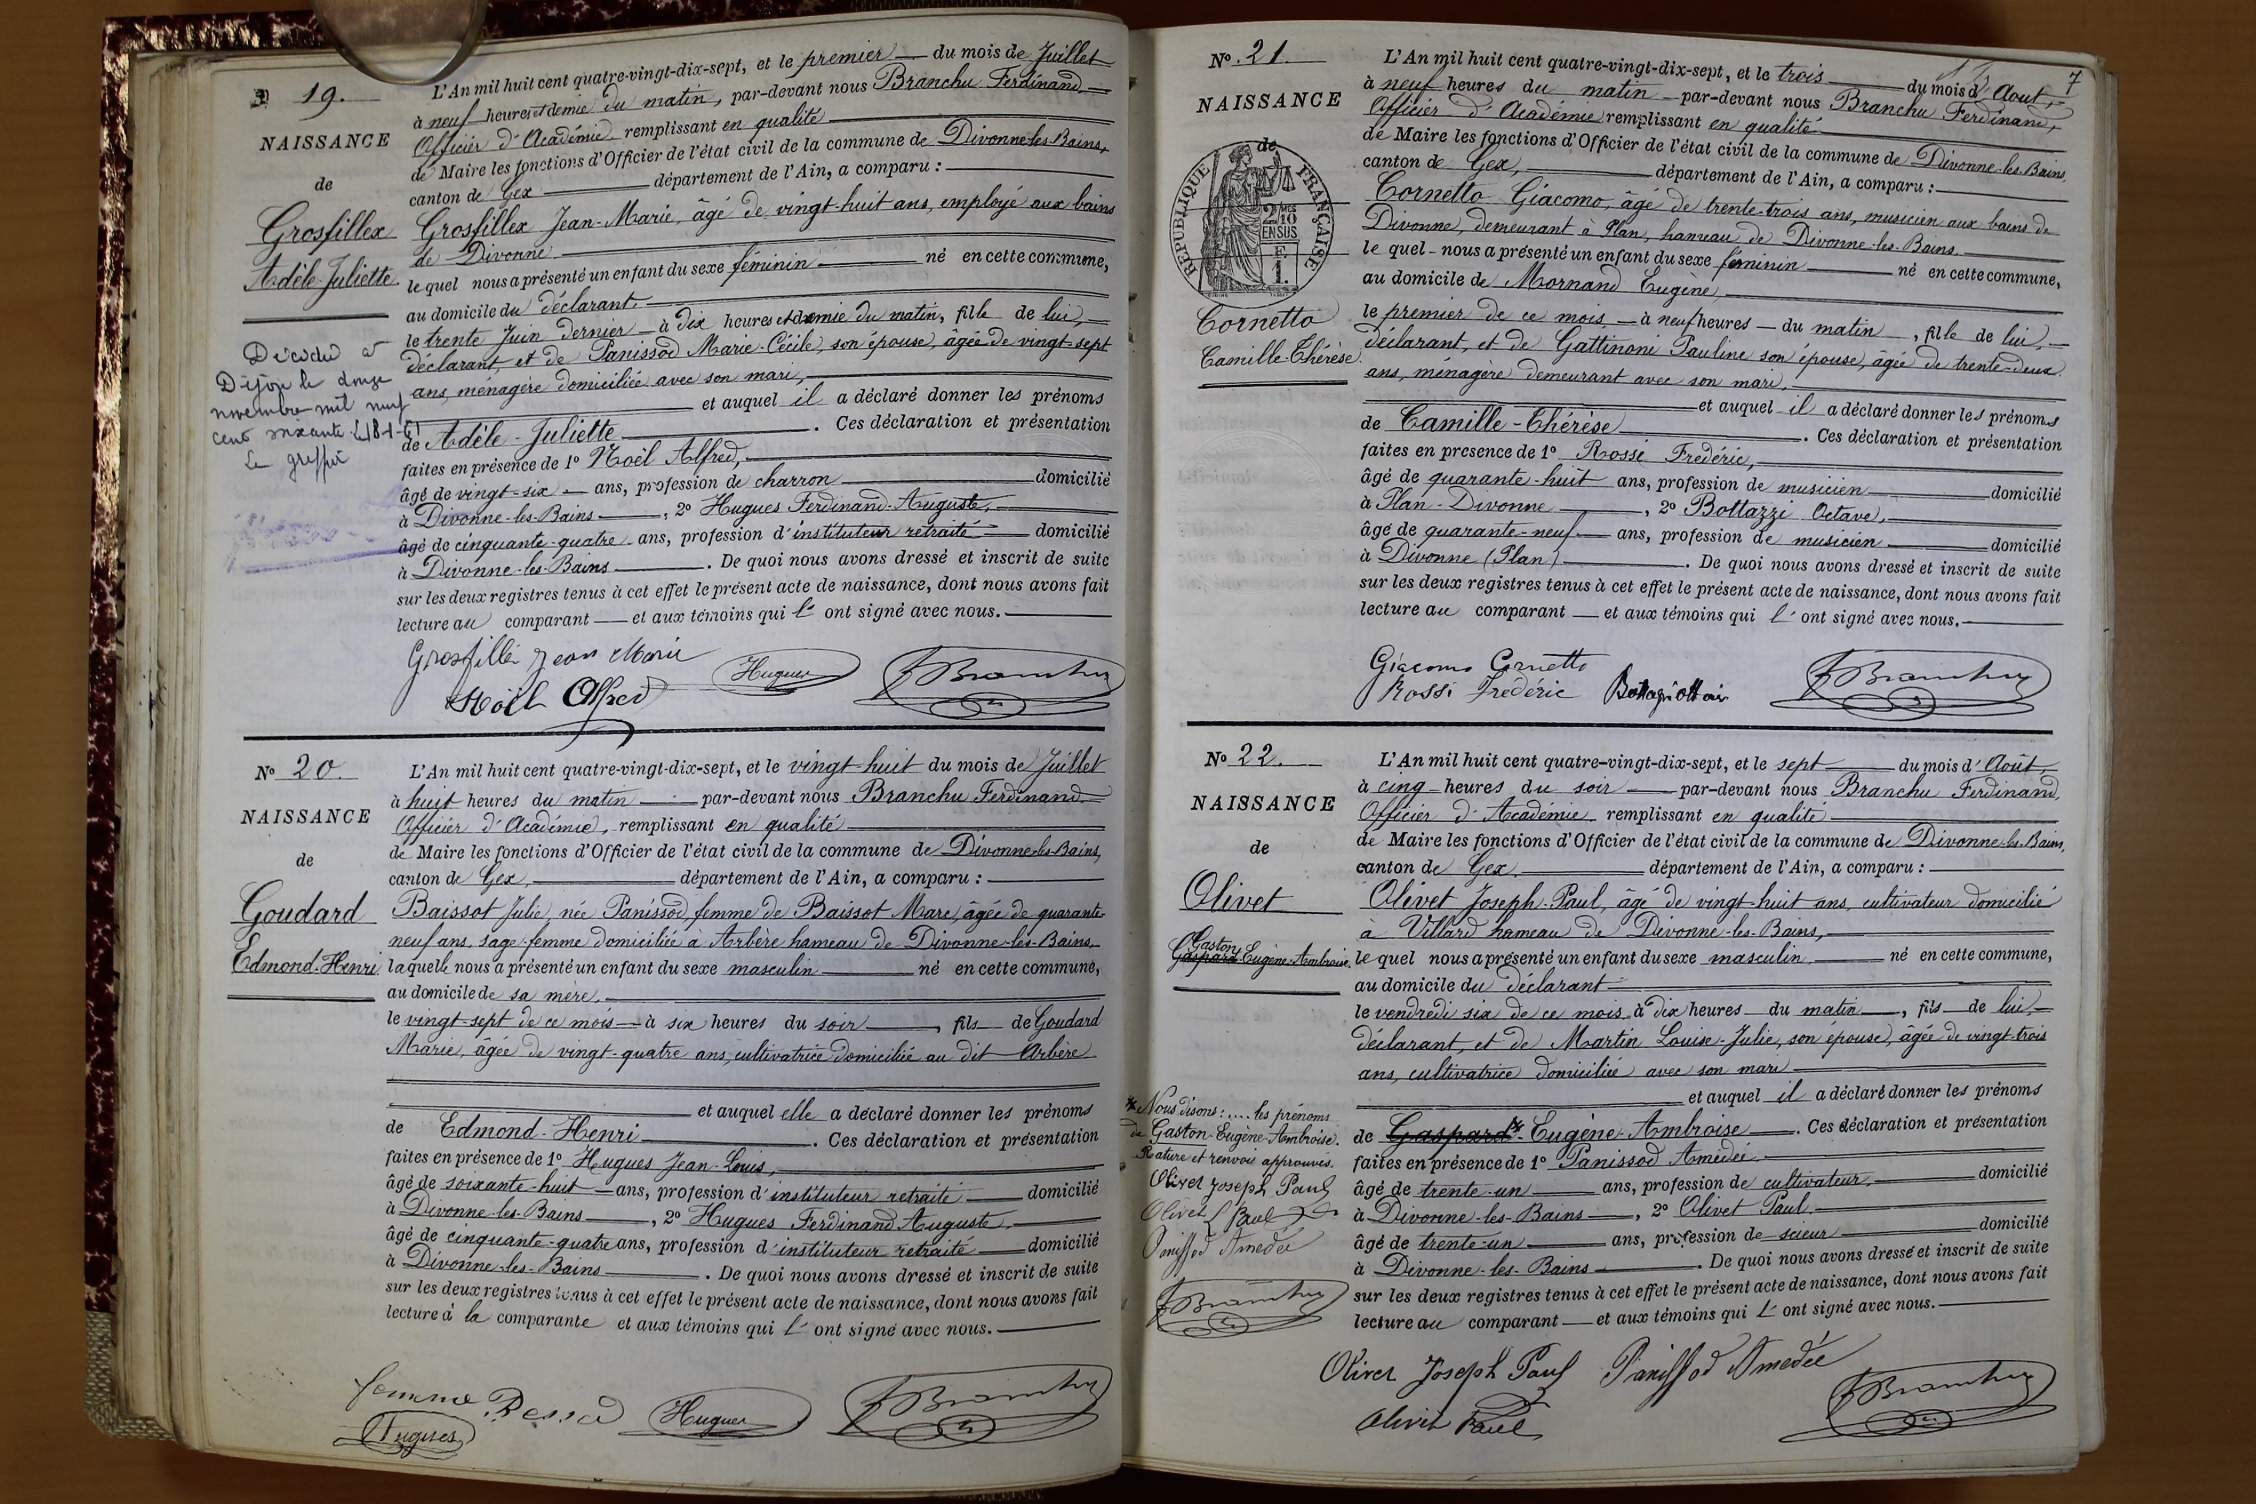 19.
NAISSANCE
de
Grosfillex
Adèle-Juliette.
Décédée à
Dijon le douze
novembre mil neuf
cent soixante
Le greffier
L'An mil huit cent quatre-vingt-dix-sept, et le premier du mois de Juillet
à neuf heures et demie du matin, par-devant nous Branchu Ferdinand
Officier d'Académie remplissant en qualité
de Maire les fonctions d'Officier de l'état civil de la commune de Divonne-les-Bains,
canton de Gex département de l'Ain, a comparu :
Grosfillex Jean-Marie, âgé de vingt-huit ans, employé aux bains
de Divonne
le quel nous a présenté un enfant du sexe féminin né en cette commune,
au domicile du déclarant.
le trente Juin dernier à dix heures et demie du matin, fille de lui,
déclarant, et de Panissod Marie-Cécile, son épouse, âgée de vingt-sept
ans, ménagère domiciliée avec son mari,
et auquel il a déclaré donner les prénoms
de Adèle-Juliette. Ces déclaration et présentation
faites en présence de 1º Noël Alfred,
âgé de vingt-six ans, profession de charron domicilié
à Divonne-les-Bains, 2º Hugues Ferdinand-Auguste,
âgé de cinquante-quatre ans, profession d'instituteur retraité domicilié
à Divonne-les-Bains. De quoi nous avons dressé et inscrit de suite
sur les deux registres tenus à cet effet le présent acte de naissance, dont nous avons fait
lecture au comparant et aux témoins qui l' ont signé avec nous.
Grosfillex Jean Marie
Hugues
FBranchu
Noël Alfred
Nº 20.
NAISSANCE
de
Goudard
Edmond-Henri
L'An mil huit cent quatre-vingt-dix-sept, et le vingt-huit du mois de Juillet
à huit heures du matin par-devant nous Branchu Ferdinand
Officier d'Académie, remplissant en qualité
de Maire les fonctions d'Officier de l'état civil de la commune de Divonne-les-Bains,
canton de Gex, département de l'Ain, a comparu :
Baissot Julie, née Panissod femme de Baissot Marc, âgée de quarante-
neuf ans, sage-femme domiciliée à Arbère hameau de Divonne-les-Bains,
laquelle nous a présenté un enfant du sexe masculin né en cette commune,
au domicile de sa mère,
le vingt-sept de ce mois à six heures du soir, fils de Goudard
Marie, âgée de vingt-quatre ans, cultivatrice domiciliée au dit Arbère
et auquel elle a déclaré donner les prénoms
de Edmond-Henri. Ces déclaration et présentation
faites en présence de 1º Hugues Jean-Louis,
âgé de soixante-huit ans, profession d'instituteur retraité domicilié
à Divonne-les-Bains, 2º Hugues Ferdinand Auguste,
âgé de cinquante-quatre ans, profession d'instituteur retraité domicilié
à Divonne-les-Bains. De quoi nous avons dressé et inscrit de suite
sur les deux registres tenus à cet effet le présent acte de naissance, dont nous avons fait
lecture à la comparante et aux témoins qui l' ont signé avec nous.
femme
Hugues
FBranchu
Hugues
7
Nº 21.
NAISSANCE
de
RÉPUBLIQUE FRANÇAISE
2/10
EN SUS
Cornetto
Camille-Thérèse.
L'An mil huit cent quatre-vingt-dix-sept, et le trois du mois d'Août,
à neuf heures du matin par-devant nous Branchu Ferdinand,
Officier d'Académie remplissant en qualité
de Maire les fonctions d'Officier de l'état civil de la commune de Divonne-les-Bains,
canton de Gex, département de l'Ain, a comparu :
Cornetto Giacomo, âgé de trente-trois ans, musicien aux bains de
Divonne, demeurant à Plan, hameau de Divonne-les-Bains.
le quel nous a présenté un enfant du sexe féminin né en cette commune,
au domicile de Mornand Eugène,
le premier de ce mois à neuf heures du matin, fille de lui,
déclarant, et de Gattinoni Pauline son épouse, âgée de trente-deux
ans, ménagère demeurant avec son mari,
et auquel il a déclaré donner les prénoms
de Camille-Thérèse. Ces déclaration et présentation
faites en présence de 1º Rossi Frédéric,
âgé de quarante-huit ans, profession de musicien domicilié
à Plan-Divonne, 2º Bottazzi Octave,
âgé de quarante-neuf ans, profession de musicien domicilié
à Divonne (Plan). De quoi nous avons dressé et inscrit de suite
sur les deux registres tenus à cet effet le présent acte de naissance, dont nous avons fait
lecture au comparant et aux témoins qui l' ont signé avec nous.
Giacomo Cornetto
Rossi Frédéric
FBranchu
Nº 22.
NAISSANCE
de
Olivet
Gaston
Gaspard-Eugène-Ambroise.
L'An mil huit cent quatre-vingt-dix-sept, et le sept du mois d'Août,
à cinq heures du soir par-devant nous Branchu Ferdinand,
Officier d'Académie remplissant en qualité
de Maire les fonctions d'Officier de l'état civil de la commune de Divonne-les-Bains,
canton de Gex. département de l'Ain, a comparu :
Olivet Joseph-Paul, âgé de vingt-huit ans, cultivateur domicilié
à Villard hameau de Divonne-les-Bains,
le quel nous a présenté un enfant du sexe masculin né en cette commune,
au domicile du déclarant
le vendredi six de ce mois à dix heures du matin, fils de lui,
déclarant, et de Martin Louise-Julie, son épouse, âgée de vingt-trois
ans, cultivatrice domiciliée avec son mari
et auquel il a déclaré donner les prénoms
de Gaspard*-Eugène-Ambroise. Ces déclaration et présentation
faites en présence de 1º Panissod Amédée
âgé de trente-un ans, profession de cultivateur, domicilié
à Divonne-les-Bains, 2º Olivet Paul,
âgé de trente-un ans, profession de scieur domicilié
à Divonne-les-Bains. De quoi nous avons dressé et inscrit de suite
sur les deux registres tenus à cet effet le présent acte de naissance, dont nous avons fait
lecture au comparant et aux témoins qui l' ont signé avec nous.
* Nous disons : .... les prénoms
de Gaston-Eugène-Ambroise.
Rature et renvoi approuvés.
Olivet Joseph Paul
Olivet Paul
Panissod Amedée
FBranchu
Olivet Joseph Paul
Panissod Amedée
Olivet Paul
FBranchu